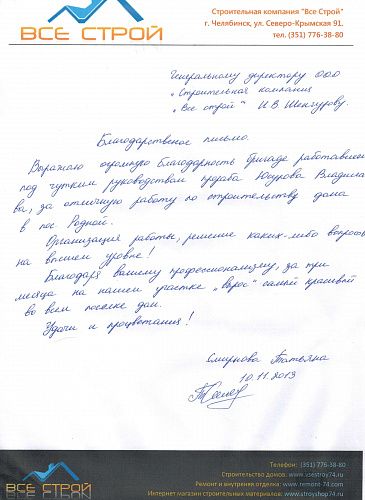 ВСЕ СТРОЙ
Строительная компания "Все Строй"
г. Челябинск, ул. Северо-Крымская 91.
тел. (351) 776-38-80
Генеральному директору ООО
„Строительная компания
„Все строй" И.В. Шингурову.
Благодарственое письмо.
Выражаю огромную благодарность бригаде работавшей
под чутким руководством прораба Юсупова Владислa
ва, за отличную работу по строительству дома
в пос. Родной.
Организация работы, решение каких-либо вопросов
на высшем уровне!
Благодаря вашему профессионализму, за три
месяца на нашем участке „вырос" самый красивый
во всем поселке дом.
Удачи и процветания!
Смирнова Татьяна
10.11.2013
ВСЕ СТРОЙ
Телефон: (351) 776-38-80
Строительство домов: www.vsestroy74.ru
Ремонт и внутреняя отделка: www.remont-74.com
Интернет магазин строительных материалов: www.stroyshop74.ru